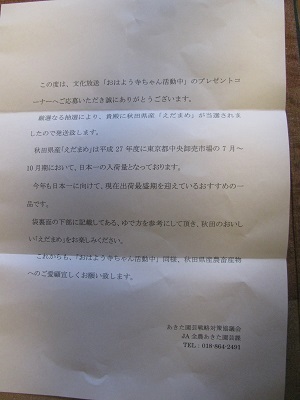 この度は、文化放送「おはよう寺ちゃん活動中」のプレゼントコ
ーナーへご応募いただき誠にありがとうございます。
厳選なる抽選により、貴殿に秋田県産「えだまめ」が当選されま
したので発送致します。
秋田県産「えだまめ」は平成 27 年度に東京都中央卸売市場の 7 月～
10 月期において、日本一の入荷量となっております。
今年も日本一に向けて、現在出荷最盛期を迎えているおすすめの一
品です。
袋裏面の下部に記載してある、ゆで方を参考にして頂き、秋田のおいし
い「えだまめ」をお楽しみください。
これからも、「おはよう寺ちゃん活動中」同様、秋田県産農畜産物
へのご愛顧宜しくお願い致します。
あきた園芸戦略対策協議会
JA 全農あきた園芸課
TEL：018-864-2491